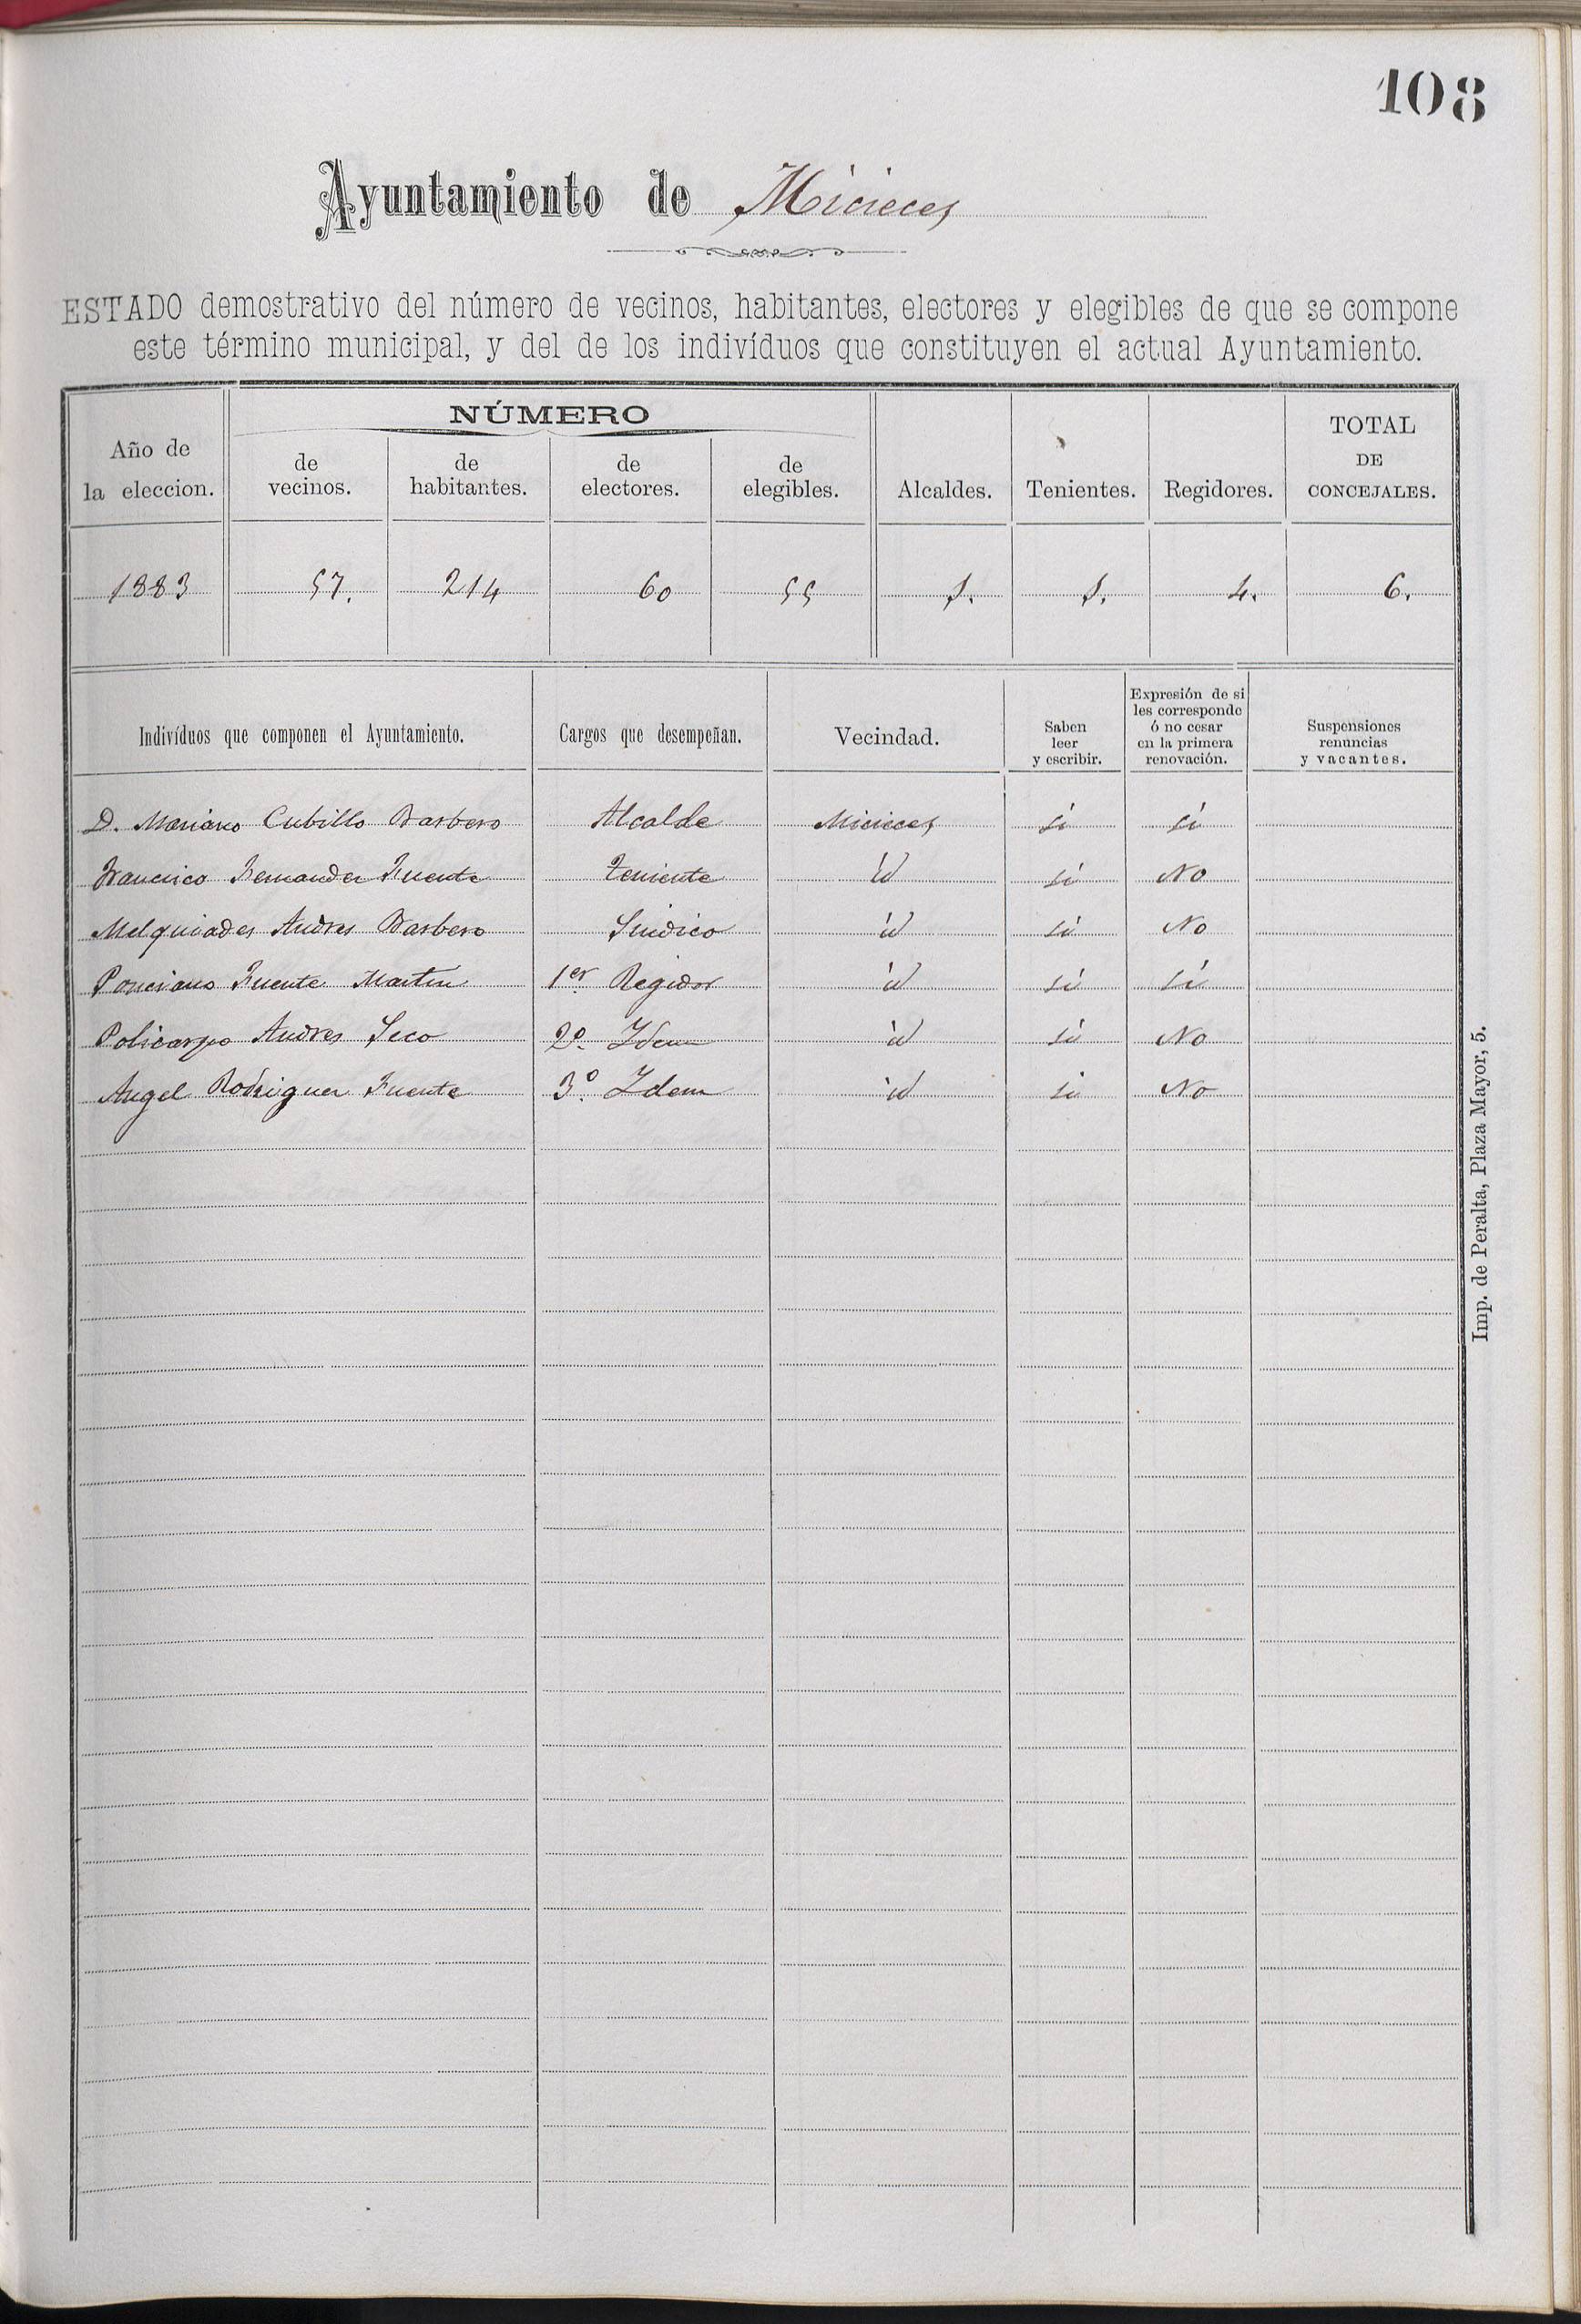 108
Ayuntamiento de Micieces
ESTADO demostrativo del número de vecinos, habitantes, electores y elegibles de que se compone
este término municipal, y del de los indivíduos que constituyen el actual Ayuntamiento.
Año de la eleccion. NÚMERO de vecinos. de habitantes. de electores. de elegibles. Alcaldes. Tenientes. Regidores. TOTAL DE CONCEJALES.
1883 57. 214 60 55 1. 1. 4. 6.
Indivíduos que componen el Ayuntamiento. Cargos que desempeñan. Vecindad. Saben leer y escribir. Expresión de si les corresponde ó no cesar en la primera renovación. Suspensiones renuncias y vacantes.
D. Mariano Cubillo Barbero Alcalde Micieces si si
Francisco Fernandez Fuente Teniente id si No
Melquiades Andres Barbero Sindico id si No
Ponciano Fuente Martin 1er Regidor id si si
Policarpo Andres Seco 2º Idem id si No
Angel Rodriguez Fuente 3º Idem id si No
Imp. de Peralta, Plaza Mayor, 5.